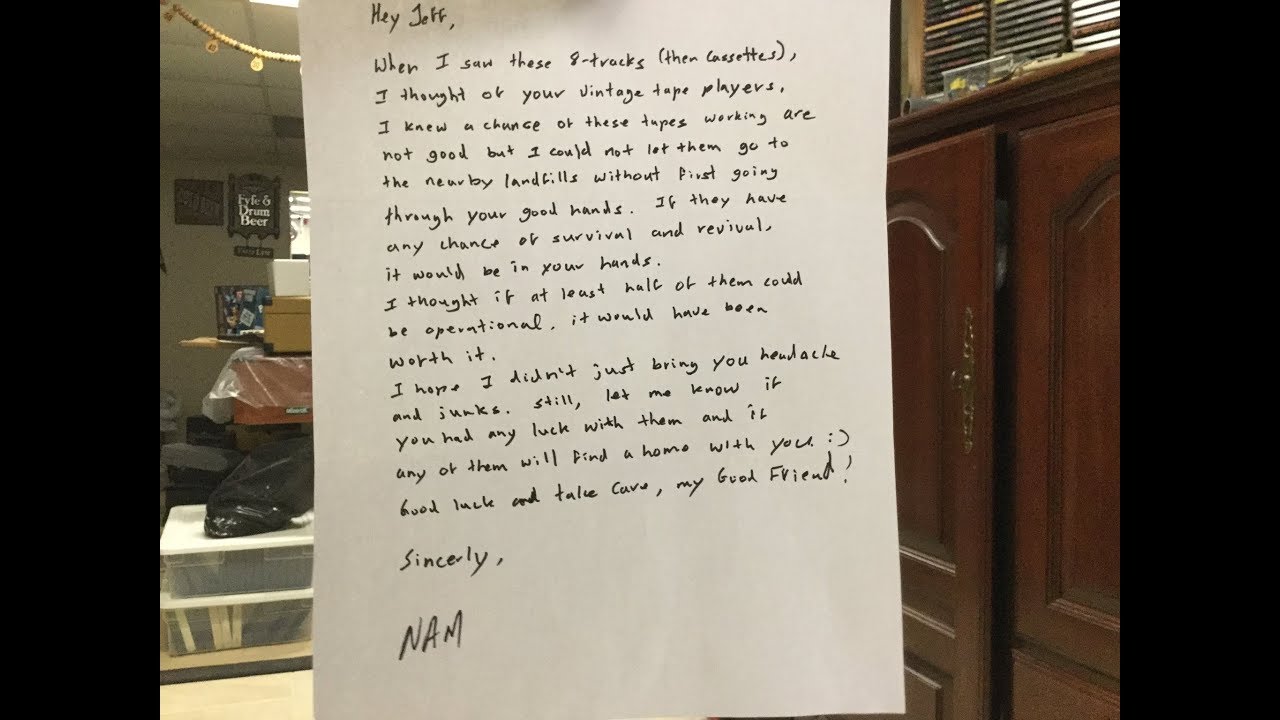 Hey Jeff,
When I saw these 8-tracks (then Cassettes),
I thought of your vintage tape players.
I knew a chance of these tapes working are
not good but I could not let them go to
the nearby landfills without first going
through your good hands. If they have
any chance of survival and revival,
it would be in your hands.
I thought if at least half of them could
be operational, it would have been
worth it.
I hope I didn't just bring you headache
and junks. Still, let me know if
you had any luck with them and if
any of them will find a home with you. :)
Good luck and take care, my Good Friend!
Sincerly,
NAM
Fyfe &
Drum
Beer